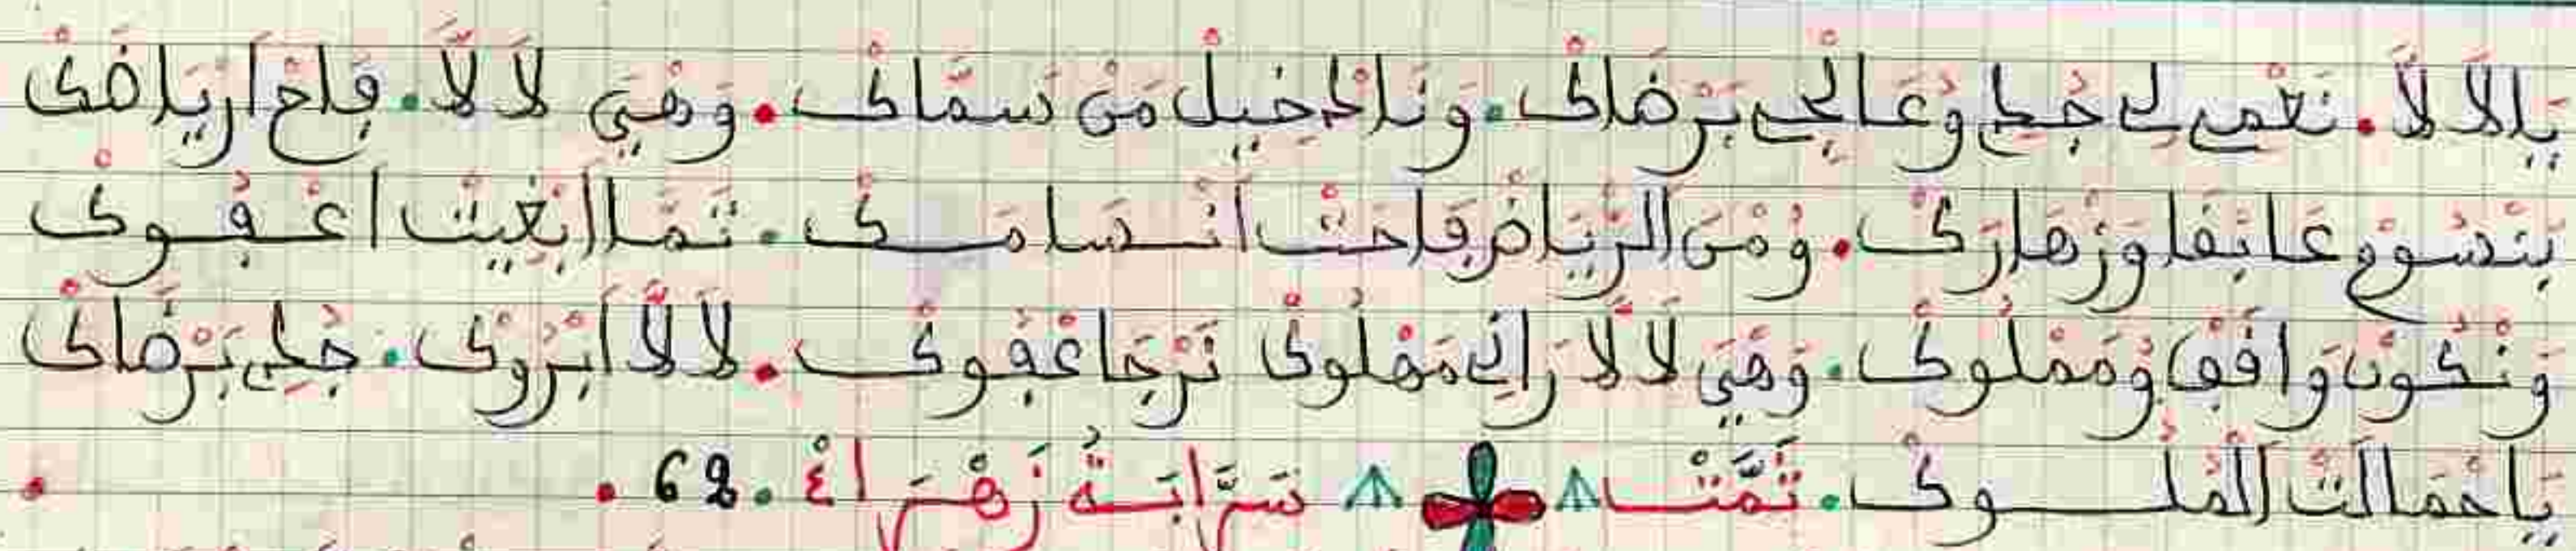 يلالا لَا. نَعْمي لي جُلي وُعَالجي بَرْضَاكْ. وَنَا الدخِيلْ مَنْ سَمَّاكْ. وَهْيَ لَا لَّا. فاح ارياضَكْ
بنْسُوم عَابقا وزْهَارَكْ. وُمْنَ الرْيَاضْ فاحَتْ انْسَامَكْ. تَمَّا ابْغيتْ اعْفُوكْ
وَنْكُونْ وَاقَفْ وُمَمْلُوكْ. وَهْيَ لَا لَّا رَانِي مَمْلُوكْ نَرْجَا عَفْوكْ. لَا لَّا ابْرُوكْ. جُلي بَرْضَاكْ
يَا جْمَالَتْ المُلُوكْ. تَمَّتْ سَرَّابَةُ زَهْرَاءْ. 62.